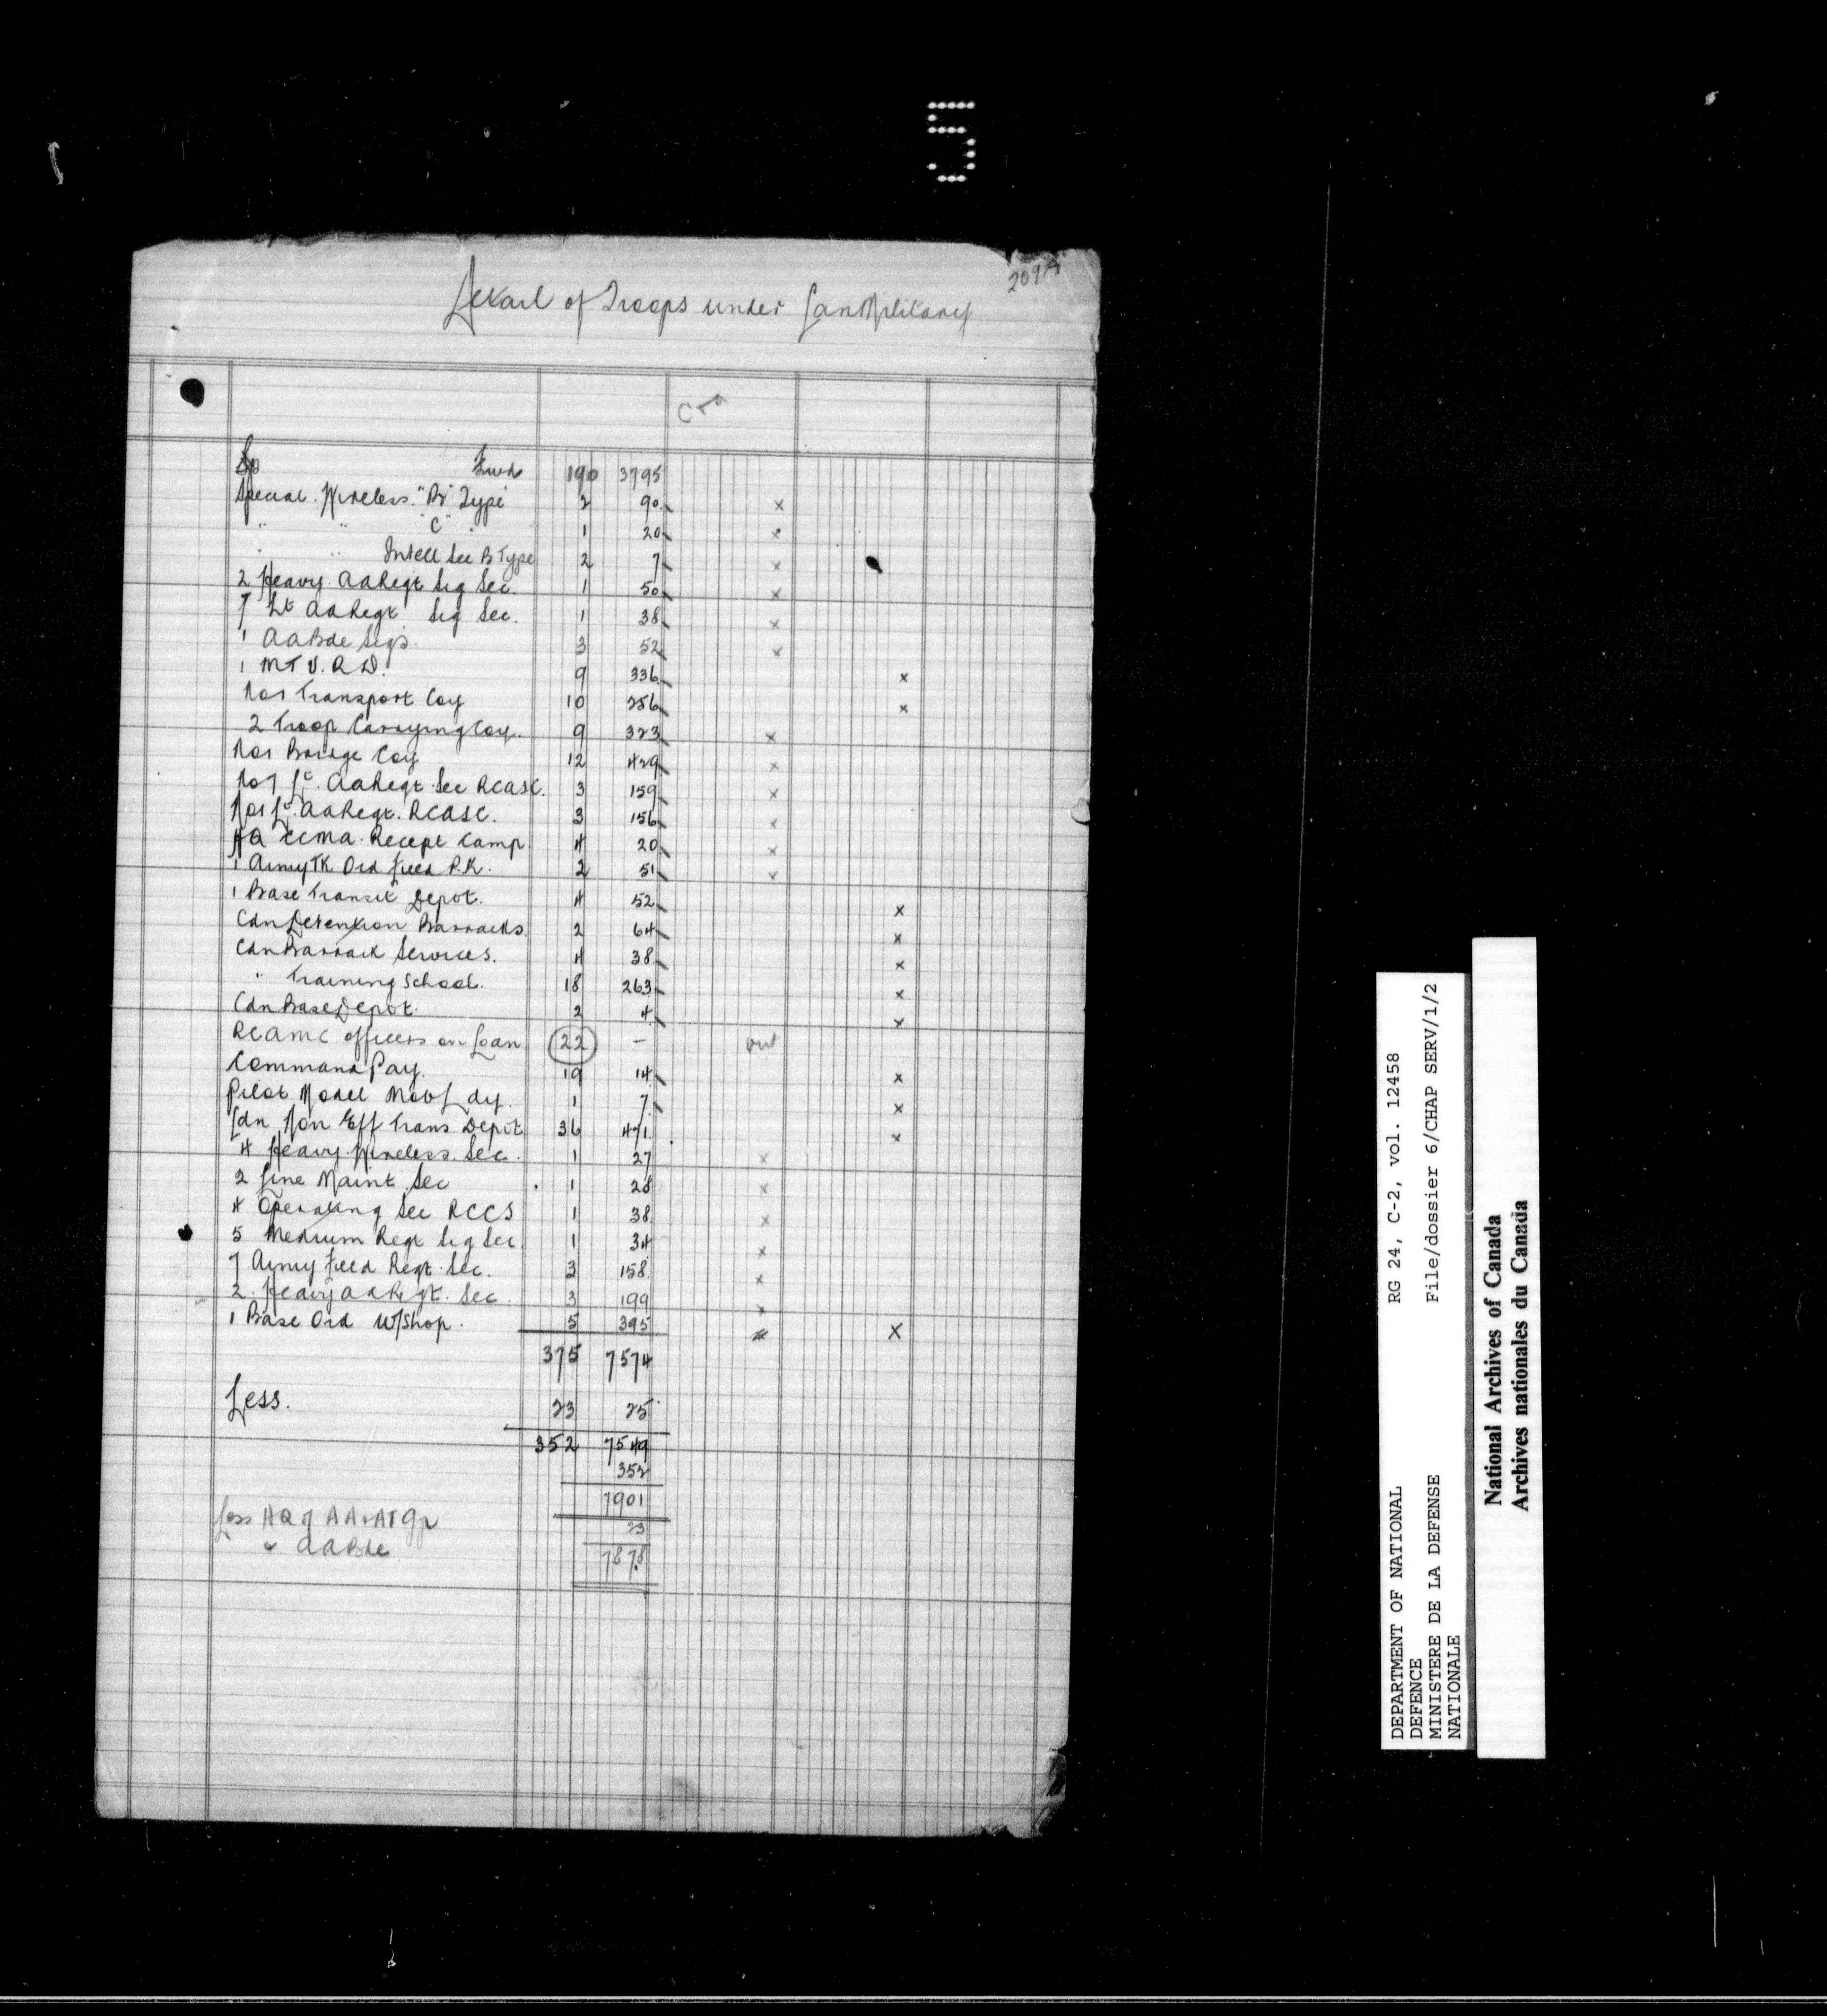 209A
Detail of Troops under CanMilitary
Fwd 190 3795
Special Wireless "B" Type 2 90 x
" " "C" " 1 20 x
" " Intell Sec B Type 2 7 x
2 Heavy AA Regt Sig Sec. 1 50 x
7 Lt AA Regt Sig Sec. 1 38 x
1 AA Bde Sigs. 3 52 x
1 M T V. R D. 9 336 x
No 1 Transport Coy 10 256 x
2 Troop Carrying Coy. 9 323 x
No 1 Bridge Coy 12 429 x
No 7 Lt. AA Regt. Sec RCASC. 3 159 x
No 1 Lt. AA Regt. RCASC. 3 156 x
HQ CCMA. Recept Camp 4 20 x
1 Army TK Ord Field P.K. 2 51 x
1 Base Transit Depot. 4 52 x
Cdn Detention Barracks. 2 64 x
Cdn Barrack Services. 4 38 x
" Training School. 18 263 x
Cdn Base Depot. 2 4 x
RCAMC officers on Loan 22 — out
Command Pay. 19 14 x
Pilot Model Mob Ldy. 1 7 x
Cdn Non Eff Trans Depot 36 471 x
4 Heavy Wireless. Sec. 1 27 x
2 Line Maint. Sec 1 28 x
4 Operating Sec RCCS 1 38 x
5 Medium Regt Sig Sec 1 34 x
7 Army Field Regt. Sec. 3 158 x
2. Heavy AA Regt. Sec. 3 199 x
1 Base Ord W/Shop. 5 395 x
375 7574
Less. 23 25
352 7549
352
7901
Less HQ of AA & AT Gp 23
& AA Bde 7878
DEPARTMENT OF NATIONAL
DEFENCE
MINISTERE DE LA DEFENSE
NATIONALE
RG 24, C-2, vol. 12458
File/dossier 6/CHAP SERV/1/2
National Archives of Canada
Archives nationales du Canada